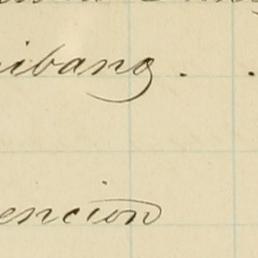 ibang . .
encion